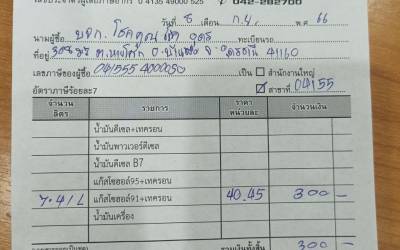 เลขประจำตัวผู้เสียภาษีอากร 0 4135 49000 525 042-282700
วันที่ 8 เดือน ก.ย. พ.ศ. 66
นามผู้ซื้อ บจก. โชคคูณ อุดร ทะเบียนรถ
ที่อยู่ จ. อุดรธานี 41160
เลขภาษีของผู้ซื้อ เป็น สำนักงานใหญ่
อัตราภาษีร้อยละ7 สาขาที่ 04155
จำนวน ลิตร รายการ ราคา หน่วยละ จำนวนเงิน
น้ำมันดีเซล+เทครอน
น้ำมันพาวเวอร์ดีเซล
น้ำมันดีเซล B7
แก๊สโซฮอล์95+เทครอน
7.41 L แก๊สโซฮอล์91+เทครอน 40.45 300 -
น้ำมันเครื่อง
รวมเงินทั้งสิ้น 300 -